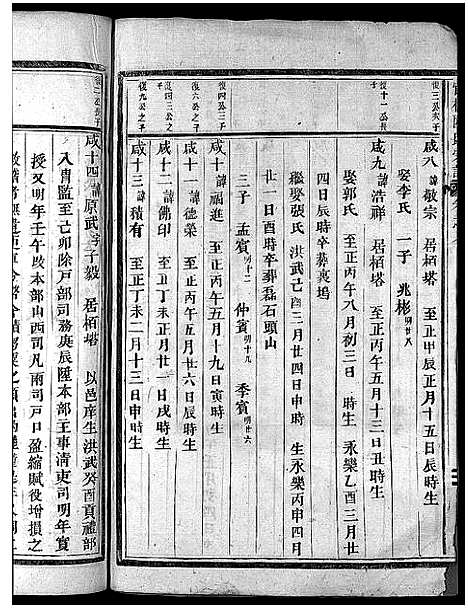 復三公次子
咸八 諱敬宗 居栢塔 至正甲辰正月十五日辰時生
娶李氏 一子 兆彬明廿八
復十一公之子
咸九 諱浩祥 至正丙午五月十三日丑時生
娶郭氏 至正丙午八月初三日 時生 永樂乙酉三月廿
四日辰時卒葬裏塢
繼娶張氏 洪武己 四日申時 生 永樂丙申四月
廿一日 時卒葬磊石頭山
三子 孟賓明十二 仲賓明十九 季賓明廿六
復四公三子
咸十 諱福進 至正丙午五月十九日寅時生
復六公之子
咸十一 諱德榮 至正丙午五月廿六日辰時生
復四公三子
咸十二 諱佛印 至正丁未正月廿一日戌時生
復九公之子
咸十三 諱積有 至正丁未二月十三日申時生
復二公次子
咸十四 諱原武字子毅 居栢塔 以邑庠生洪武癸酉貢禮部
入胄監至己卯除戶部司務庚辰陞本部主事清吏司明年實
授又明年壬午收本部山西司凡兩司戶口盈縮賦役增損之